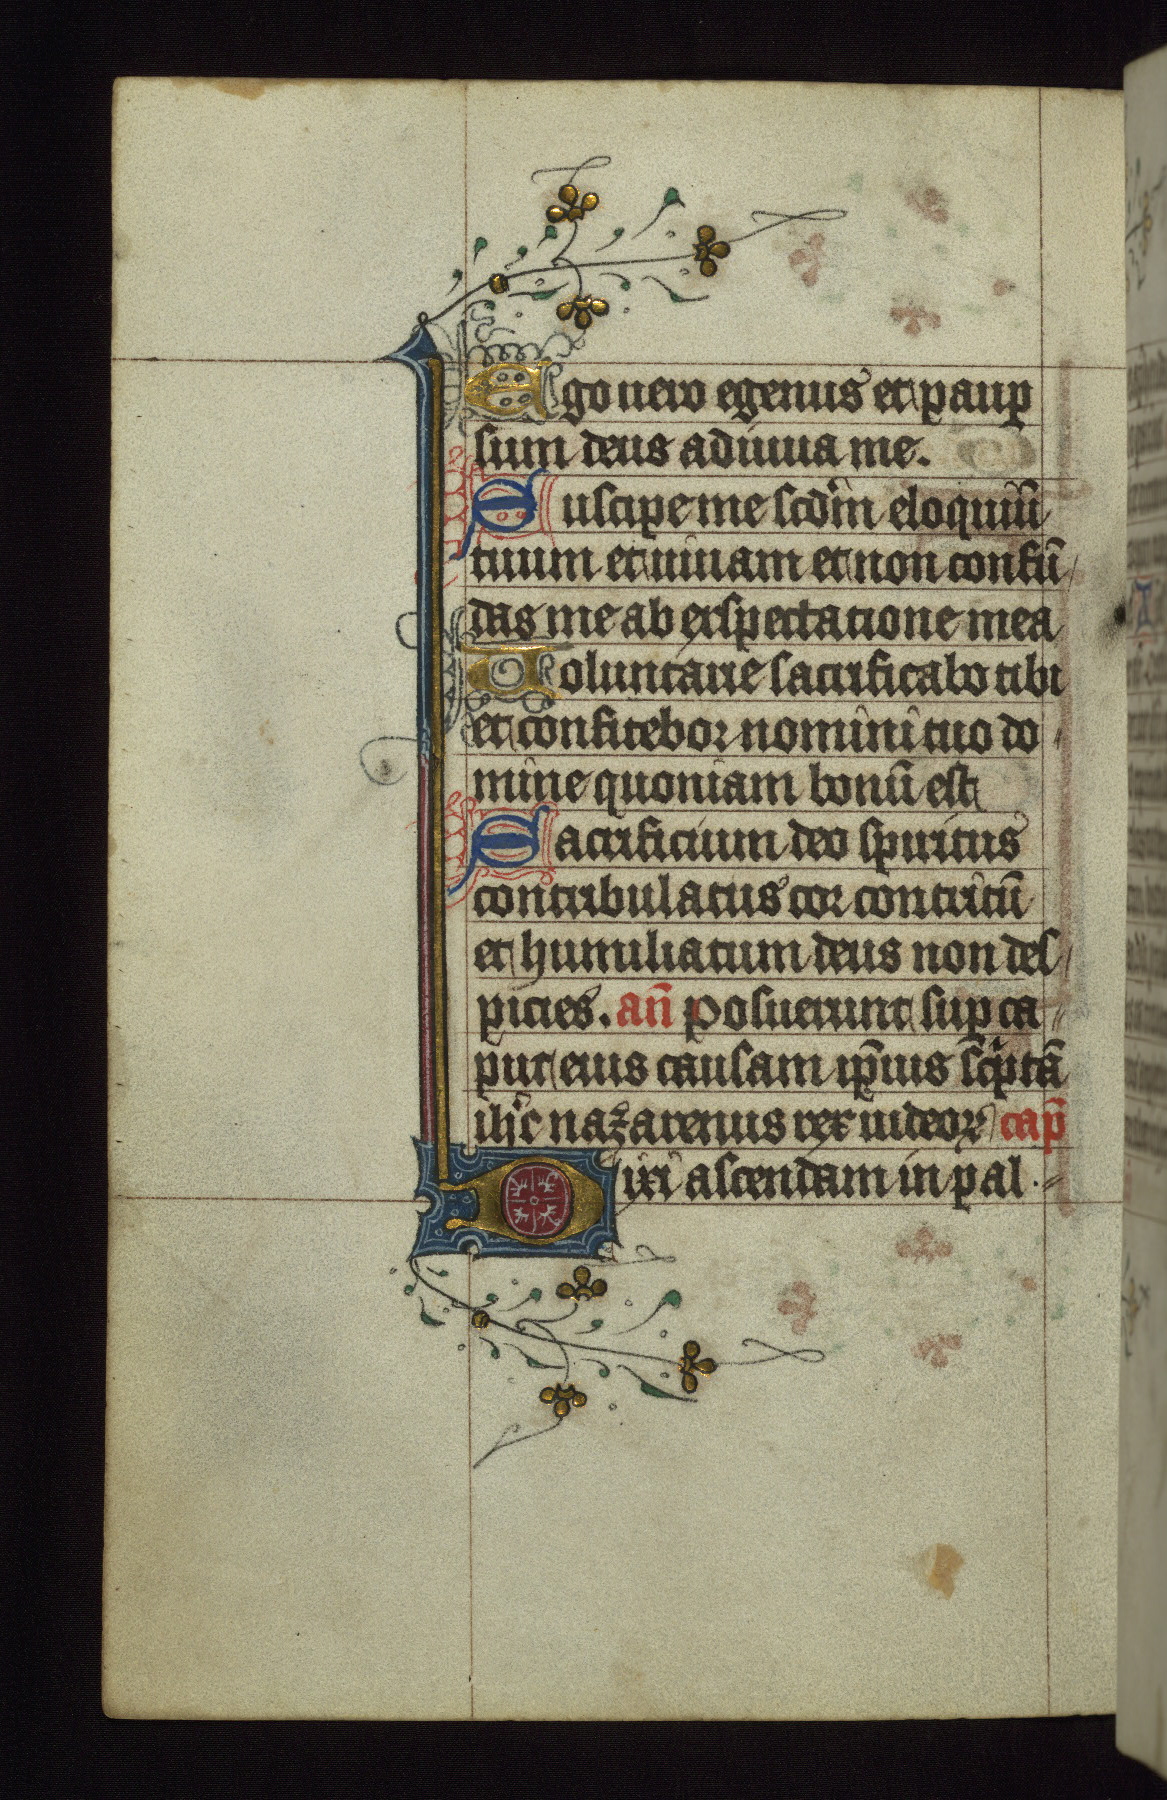 Ego uero egenus et paup̄
sum deus adiuua me.
Suscipe me scdm̄ eloquiū
tuum et uiuam et non confū
das me ab exspectatione mea
Uoluntarie sacrificabo tibi
et confitebor nomini tuo do
mine quoniam bonū est
Sacrificium deo spiritus
contribulatus cor contritū
et humiliatum deus non des
picies. an̄ Posuerunt sup ca
put eius causam ip̄ius sc̄ptā
ihc̄ nazarenus rex iudeoꝝ cap̄
Dixi ascendam in pal